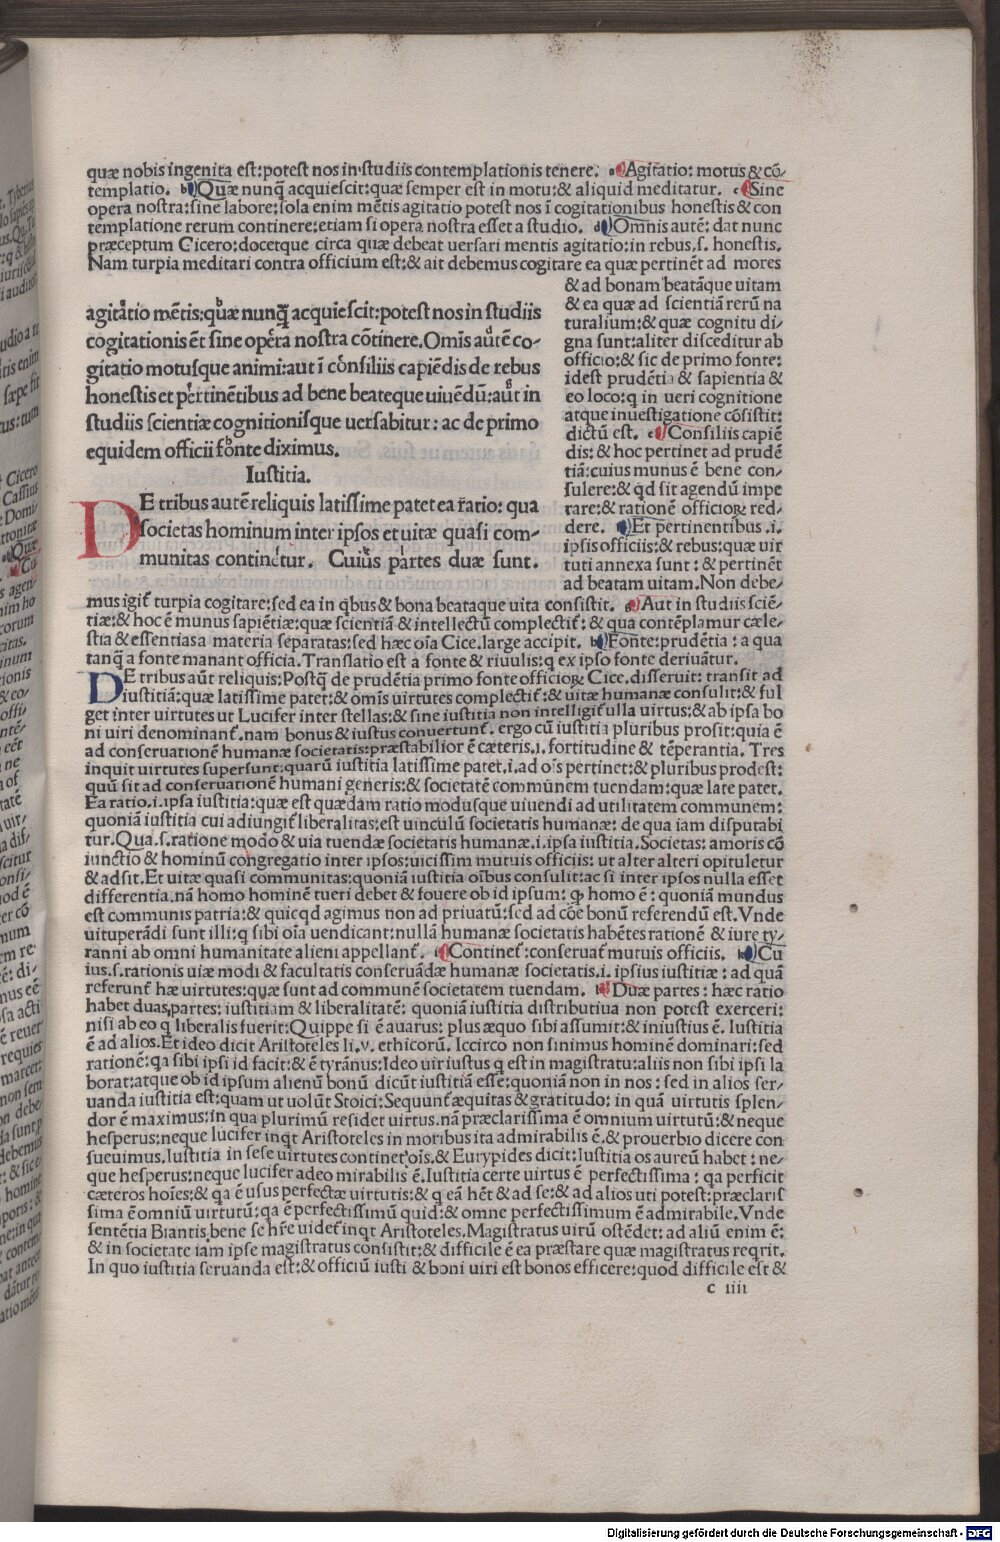 quæ nobis ingenita est:potest nos in studiis contemplationis tenere. a Agitatio: motus & cō/
templatio. b Quæ nunq̄ acquiescit:quæ semper est in motu:& aliquid meditatur. c Sine
opera nostra:sine labore:sola enim mētis agitatio potest nos ī cogitationibus honestis & con
templatione rerum continere:etiam si opera nostra esset a studio. d Omnis autē: dat nunc
præceptum Cicero:docetque circa quæ debeat uersari mentis agitatio:in rebus.s. honestis.
Nam turpia meditari contra officium est:& ait debemus cogitare ea quæ pertinēt ad mores
& ad bonam beatāque uitam
& ea quæ ad scientiā rerū na
turalium:& quæ cognitu di/
gna sunt:aliter disceditur ab
officio:& sic de primo fonte:
idest prudētia & sapientia &
eo loco:q in ueri cognitione
atque inuestigatione cōsistit:
dictū est. e Consiliis capiē
dis:& hoc pertinet ad prudē
tiā:cuius munus ē bene con/
sulere:& qd sit agendū impe
rare:& rationē officioꝝ red/
dere. f Et pertinentibus .i.
ipsis officiis:& rebus:quæ uir
tuti annexa sunt: & pertinēt
ad beatam uitam.Non debe/
agitatio mētis:quæ nunq̄ acquiescit:potest nos in studiis
cogitationis ēt sine opera nostra cōtinere.Omīs autē co-
gitatio motusque animi:aut ī consiliis capiēdis de rebus
honestis et pertinētibus ad bene beateque uiuēdū:aut in
studiis scientiæ cognitionisque uersabitur: ac de primo
equidem officii fonte diximus.
Iustitia.
DE tribus autē reliquis latissime patet ea ratio: qua
societas hominum inter ipsos et uitæ quasi com-
munitas continetur. Cuius partes duæ sunt.
mus igiť turpia cogitare:sed ea in qbus & bona beataque uita consistit. g Aut in studiis sciē/
tiæ:& hoc ē munus sapiētiæ:quæ scientiā & intellectū complectiť: & qua contēplamur cæle/
stia & essentias a materia separatas:sed hæc oīa Cice.large accipit. h Fonte:prudētia: a qua
tanq̄ a fonte manant officia.Translatio est a fonte & riuulis:q ex ipso fonte deriuātur.
DE tribus aūt reliquis:Postq̄ de prudētia primo fonte officioꝝ Cice.disseruit: transit ad
iustitiā:quæ latissime patet:& omīs uirtutes complectiť:& uitæ humanæ consulit:& ful
get inter uirtutes ut Lucifer inter stellas:& sine iustitia non intelligiť ulla uirtus:& ab ipsa bo
ni uiri denominanť.nam bonus & iustus conuertunť. ergo cū iustitia pluribus prosit:quia ē
ad conseruationē humanæ societatis:præstabilior ē cæteris.i. fortitudine & tēperantia. Tres
inquit uirtutes supersunt:quarū iustitia latissime patet.i.ad oīs pertinet:& pluribus prodest:
quū sit ad conseruationē humani generis:& societatē communem tuendam:quæ late patet.
Ea ratio.i.ipsa iustitia:quæ est quædam ratio modusque uiuendi ad utilitatem communem:
quoniā iustitia cui adiungiť liberalitas:est uinculū societatis humanæ: de qua iam disputabi
tur.Qua.s.ratione modo & uia tuendæ societatis humanæ.i.ipsa iustitia.Societas: amoris cō
iunctio & hominū congregatio inter ipsos:uicissim mutuis officiis: ut alter alteri opituletur
& adsit.Et uitæ quasi communitas:quoniā iustitia oībus consulit:ac si inter ipsos nulla esset
differentia.nā homo hominē tueri debet & fouere ob id ipsum: qꝫ homo ē: quoniā mundus
est communis patria:& quicqd agimus non ad priuatū:sed ad cōe bonū referendū est.Vnde
uituperādi sunt illi:q sibi oīa uendicant:nullā humanæ societatis habētes rationē & iure ty/
ranni ab omni humanitate alieni appellanť. i Contineť:conseruať mutuis officiis. k Cu
ius.s.rationis uiæ modi & facultatis conseruādæ humanæ societatis.i. ipsius iustitiæ: ad quā
referunť hæ uirtutes:quæ sunt ad communē societatem tuendam. l Duæ partes: hæc ratio
habet duas partes: iustitiam & liberalitatē: quoniā iustitia distributiua non potest exerceri:
nisi ab eo q liberalis fuerit:Quippe si ē auarus: plus æquo sibi assumit:& iniustius ē. Iustitia
ē ad alios.Et ideo dicit Aristoteles li.v. ethicorū. Iccirco non sinimus hominē dominari:sed
rationē:qa sibi ipsi id facit:& ē tyrānus:Ideo uir iustus q est in magistratu:aliis non sibi ipsi la
borat:atque ob id ipsum alienū bonū dicūt iustitiā esse:quoniā non in nos: sed in alios ser/
uanda iustitia est:quam ut uolūt Stoici:Sequunť æquitas & gratitudo: in quā uirtutis splen/
dor ē maximus:in qua plurimū residet uirtus.nā præclarissima ē omnium uirtutū:& neque
hesperus:neque lucifer inqt Aristoteles in moribus ita admirabilis ē.& prouerbio dicere con
sueuimus.Iustitia in sese uirtutes continet oīs.& Eurypides dicit:Iustitia os aureū habet: ne/
que hesperus:neque lucifer adeo mirabilis ē.Iustitia certe uirtus ē perfectissima: qa perficit
cæteros hoīes:& qa ē usus perfectæ uirtutis:& q eā hēt & ad se:& ad alios uti potest:præclaris
sima ē omniū uirtutū:qa ē perfectissimū quid:& omne perfectissimum ē admirabile.Vnde
sentētia Biantis bene se hr̄e uideť inqt Aristoteles.Magistratus uirū ostēdet: ad aliū enim ē:
& in societate iam ipse magistratus consistit:& difficile ē ea præstare quæ magistratus reqrit.
In quo iustitia seruanda est:& officiū iusti & boni uiri est bonos efficere:quod difficile est &
c iiii
Digitalisierung gefördert durch die Deutsche Forschungsgemeinschaft - DFG